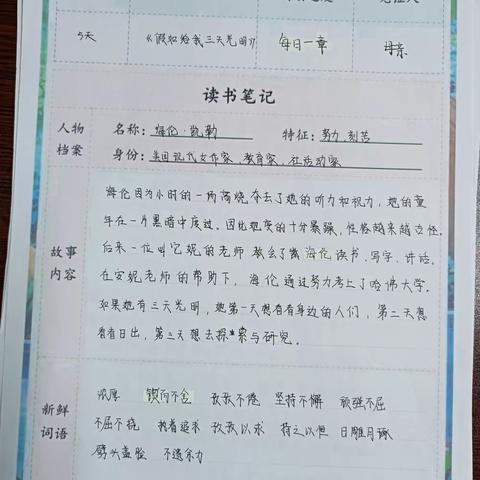 5天 《假如给我三天光明》 每日一章 母亲
读书笔记
人物档案 名称：海伦·凯勒 特征：努力、刻苦
身份：美国现代女作家、教育家、社活动家
故事内容
海伦因为小时的一场高烧夺去了她的听力和视力，她的童
年在一片黑暗中度过。因此她变的十分暴躁，性格越来越古怪。
后来一位叫安妮的老师 教会了海伦读书、写字、讲话。
在安妮老师的帮助下，海伦通过努力考上了哈佛大学。
如果她有三天光明，她第一天想看看身边的人们，第二天想
看看日出，第三天想去探索与研究。
新鲜词语
浓厚 锲而不舍 孜孜不倦 坚持不懈 顽强不屈
不屈不挠 执着追求 孜孜以求 持之以恒 日雕月琢
劈头盖脸 不遗余力